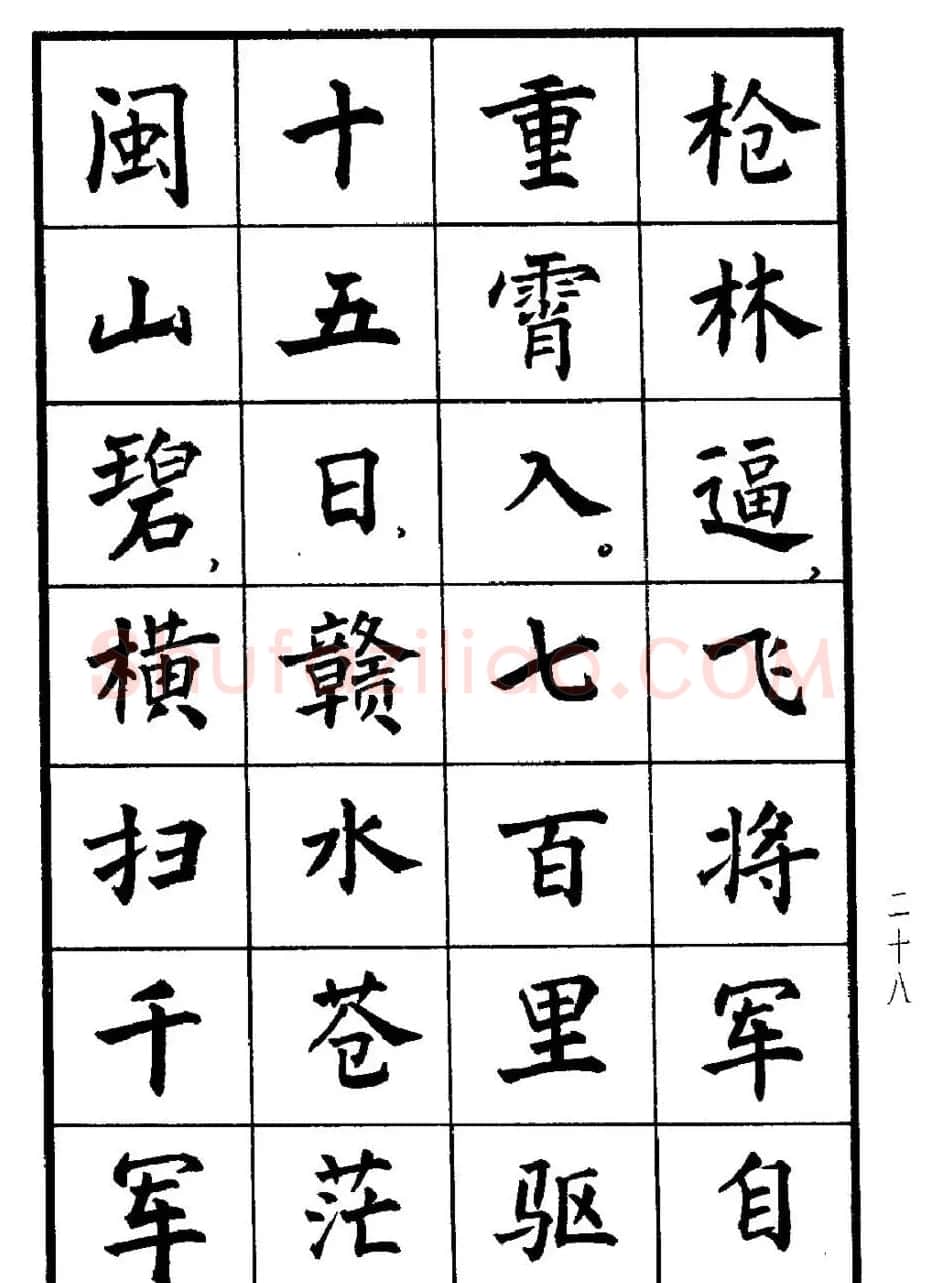 枪林逼，飞将军自
重霄入。七百里驱
十五日，赣水苍茫
闽山碧，横扫千军
二十八
Shufaziliao.COM